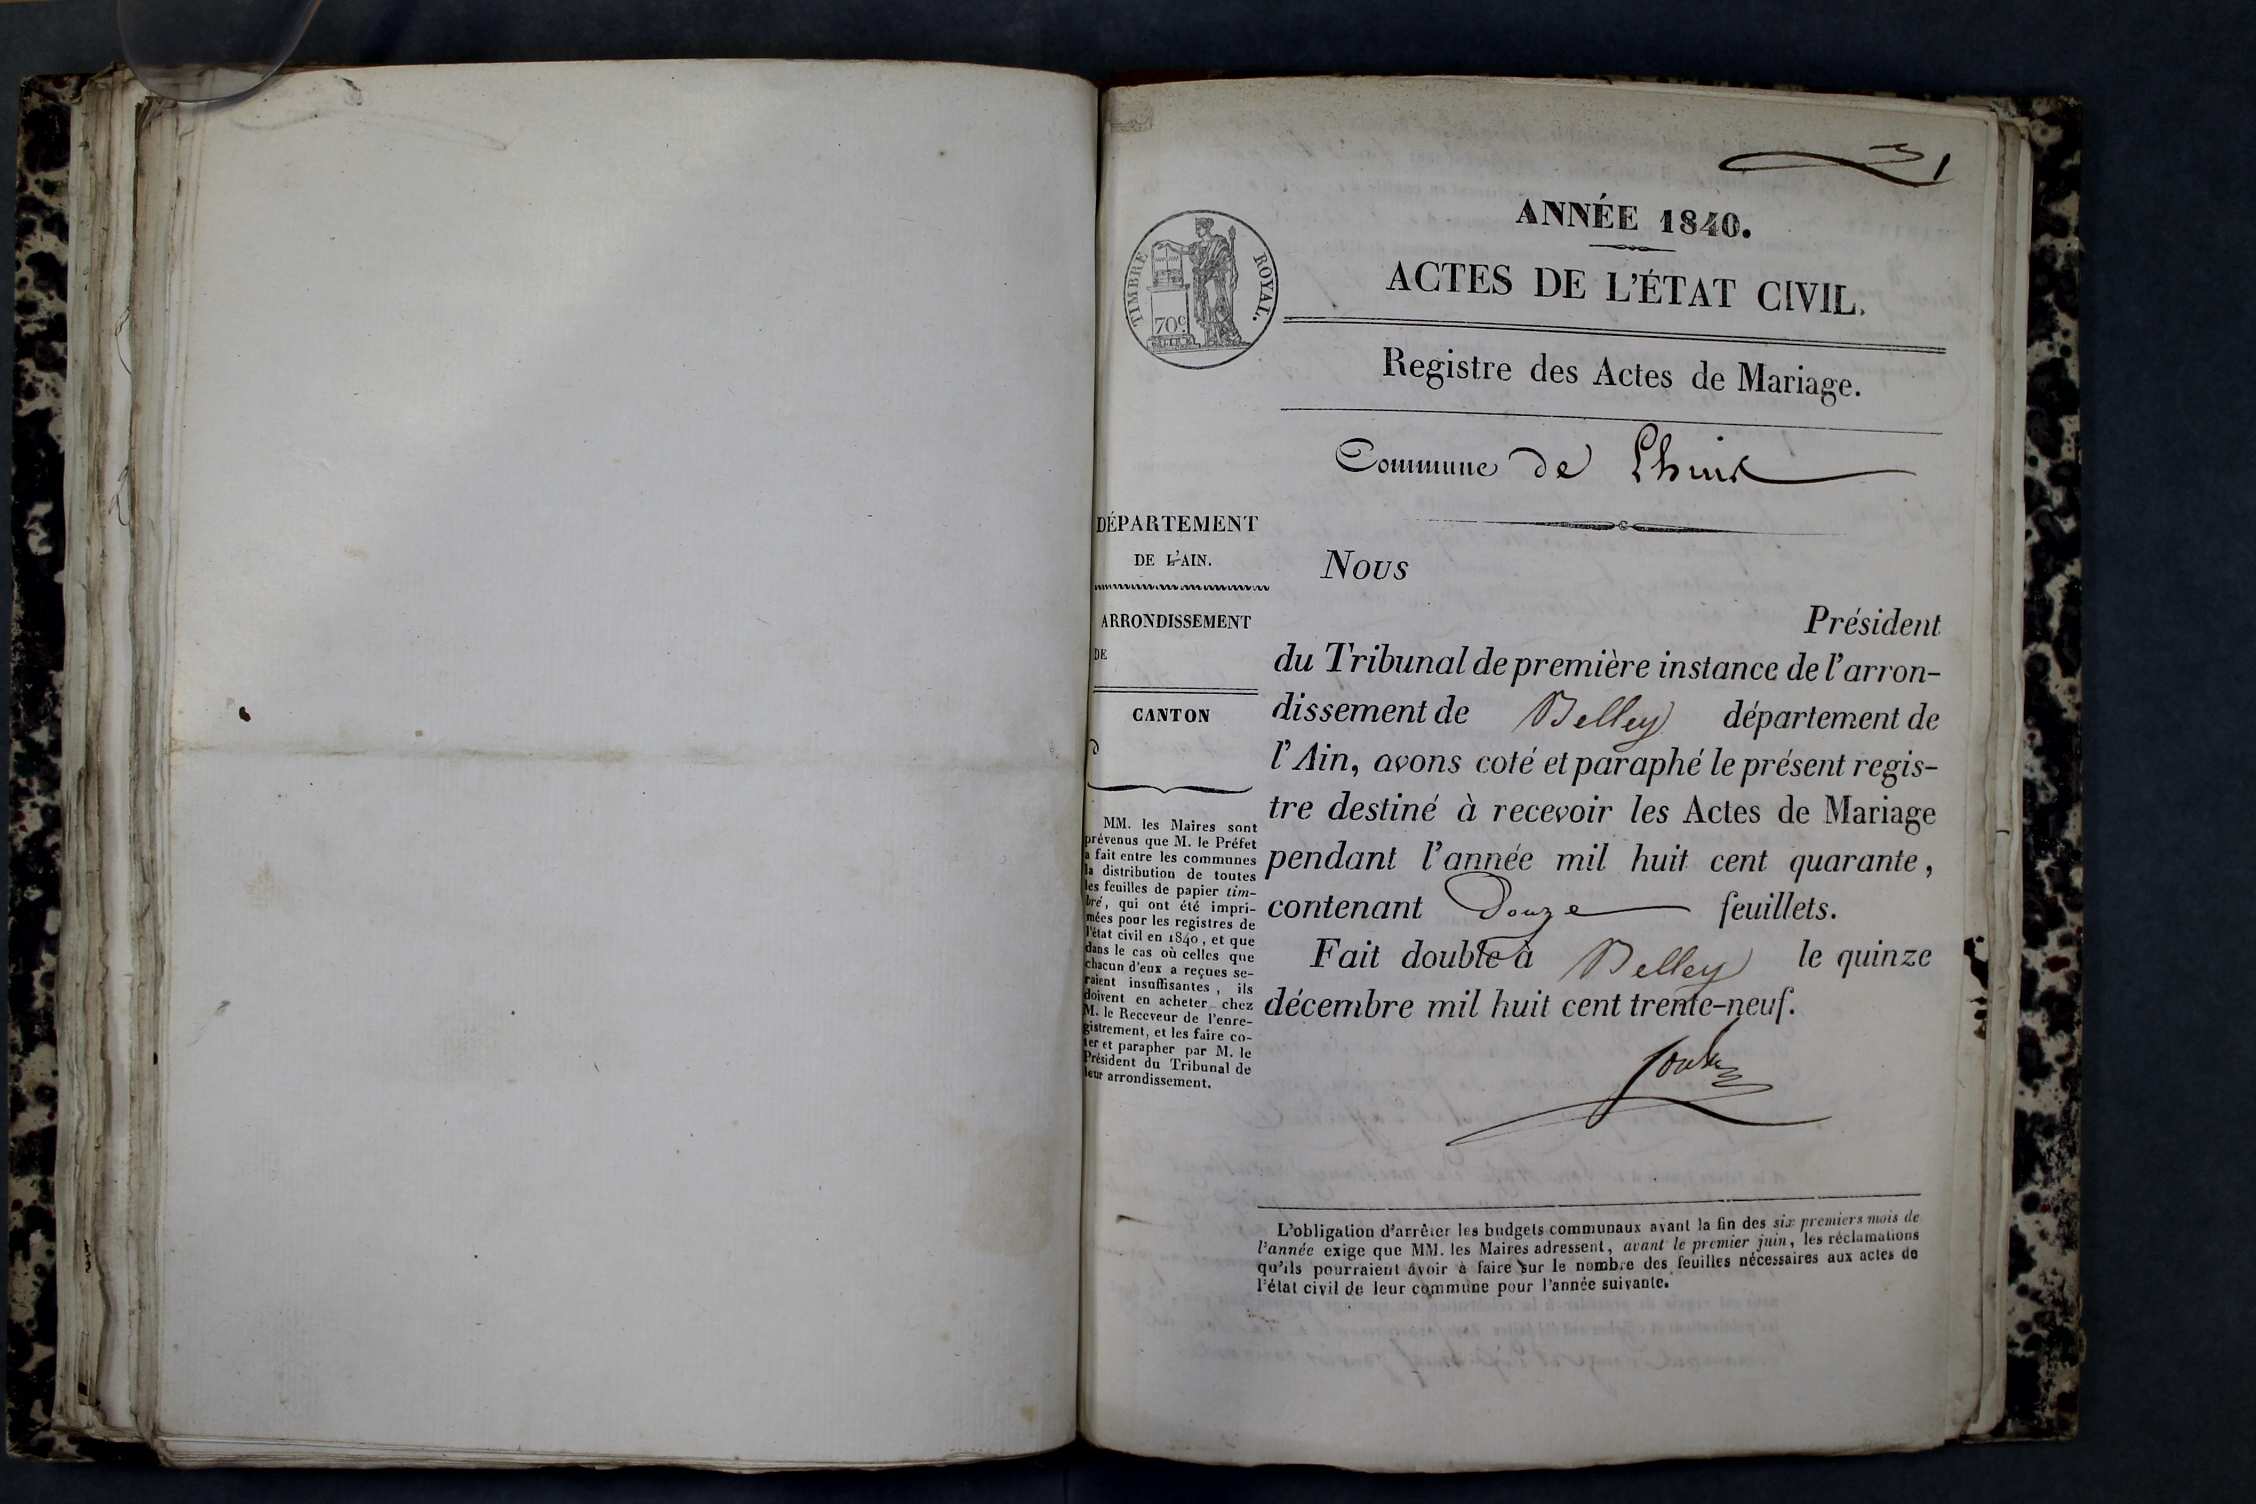 1
ANNÉE 1840.
TIMBRE ROYAL.
70c
ACTES DE L'ÉTAT CIVIL.
Registre des Actes de Mariage.
Commune de Lhuis
DÉPARTEMENT
DE L'AIN.
ARRONDISSEMENT
DE
CANTON
D
MM. les Maires sont
prévenus que M. le Préfet
a fait entre les communes
la distribution de toutes
les feuilles de papier tim-
bré, qui ont été impri-
mées pour les registres de
l'état civil en 1840, et que
dans le cas où celles que
chacun d'eux a reçues se-
raient insuffisantes, ils
doivent en acheter chez
M. le Receveur de l'enre-
gistrement, et les faire co-
ter et parapher par M. le
Président du Tribunal de
leur arrondissement.
Nous
Président
du Tribunal de première instance de l'arron-
dissement de Belley département de
l'Ain, avons coté et paraphé le présent regis-
tre destiné à recevoir les Actes de Mariage
pendant l'année mil huit cent quarante,
contenant Douze feuillets.
Fait double à Belley le quinze
décembre mil huit cent trente-neuf.
L'obligation d'arrêter les budgets communaux avant la fin des six premiers mois de
l'année exige que MM. les Maires adressent, avant le premier juin, les réclamations
qu'ils pourraient avoir à faire sur le nombre des feuilles nécessaires aux actes de
l'état civil de leur commune pour l'année suivante.